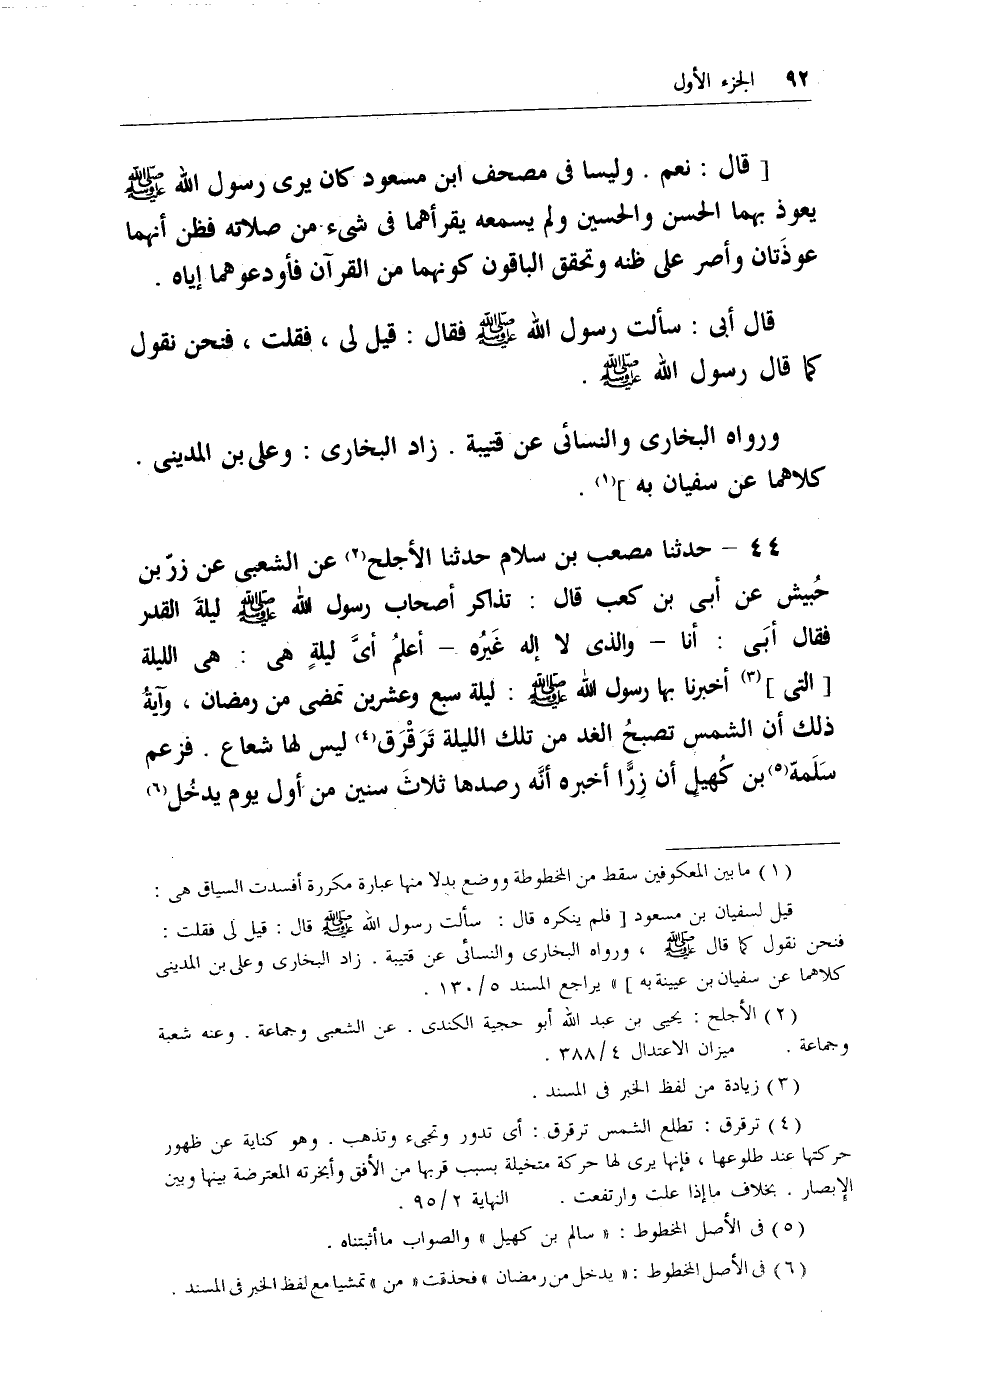 ٩٢ الجزء الأول
[ قال : نعم . وليسا فى مصحف ابن مسعود كان يرى رسول الله ﷺ
يعوذ بهما الحسن والحسين ولم يسمعه يقرأهما فى شىء من صلاته فظن أنهما
عوذَتان وأصر على ظنه وتحقق الباقون كونهما من القرآن فأودعوهما إياه .
قال أبى : سألت رسول الله ﷺ فقال : قيل لى ، فقلت ، فنحن نقول
كما قال رسول الله ﷺ .
ورواه البخارى والنسائى عن قتيبة . زاد البخارى : وعلى بن المدينى .
كلاهما عن سفيان به ](١) .
٤٤ – حدثنا مصعب بن سلام حدثنا الأجلح(٢) عن الشعبى عن زرّ بن
حُبيش عن أبى بن كعب قال : تذاكر أصحاب رسول الله ﷺ ليلةَ القدر
فقال أبَى : أنا – والذى لا إله غَيرُه – أعلمُ أىَّ ليلةٍ هى : هى الليلة
[ التى ](٣) أخبرنا بها رسول الله ﷺ : ليلة سبع وعشرين تمضى من رمضان ، وآيةُ
ذلك أن الشمس تصبحُ الغد من تلك الليلة تَرَقْرَق(٤) ليس لها شعاع . فزعم
سَلَمة(٥) بن كُهيلٍ أن زِرًّا أخبره أنَّه رصدها ثلاثَ سنين من أول يوم يدخُل(٦)
(١) ما بين المعكوفين سقط من المخطوطة ووضع بدلا منها عبارة مكررة أفسدت السياق هى :
قيل لسفيان بن مسعود [ فلم ينكره قال : سألت رسول الله ﷺ قال : قيل لى فقلت :
فنحن نقول كما قال ﷺ ، ورواه البخارى والنسائى عن قتيبة . زاد البخارى وعلى بن المدينى
كلاهما عن سفيان بن عيينة به ] » يراجع المسند ١٣٠/٥ .
(٢) الأجلح : يحيى بن عبد الله أبو حجية الكندى . عن الشعبى وجماعة . وعنه شعبة
وجماعة . ميزان الاعتدال ٣٨٨/٤ .
(٣) زيادة من لفظ الخبر فى المسند .
(٤) ترقرق : تطلع الشمس ترقرق : أى تدور وتجىء وتذهب . وهو كناية عن ظهور
حركتها عند طلوعها ، فإنها يرى لها حركة متخيلة بسبب قربها من الأفق وأبخرته المعترضة بينها وبين
الإبصار . بخلاف ما إذا علت وارتفعت . النهاية ٩٥/٢ .
(٥) فى الأصل المخطوط : « سالم بن كهيل » والصواب ما أثبتناه .
(٦) فى الأصل المخطوط : « يدخل من رمضان » فحذقت « من » تمشيا مع لفظ الخبر فى المسند .